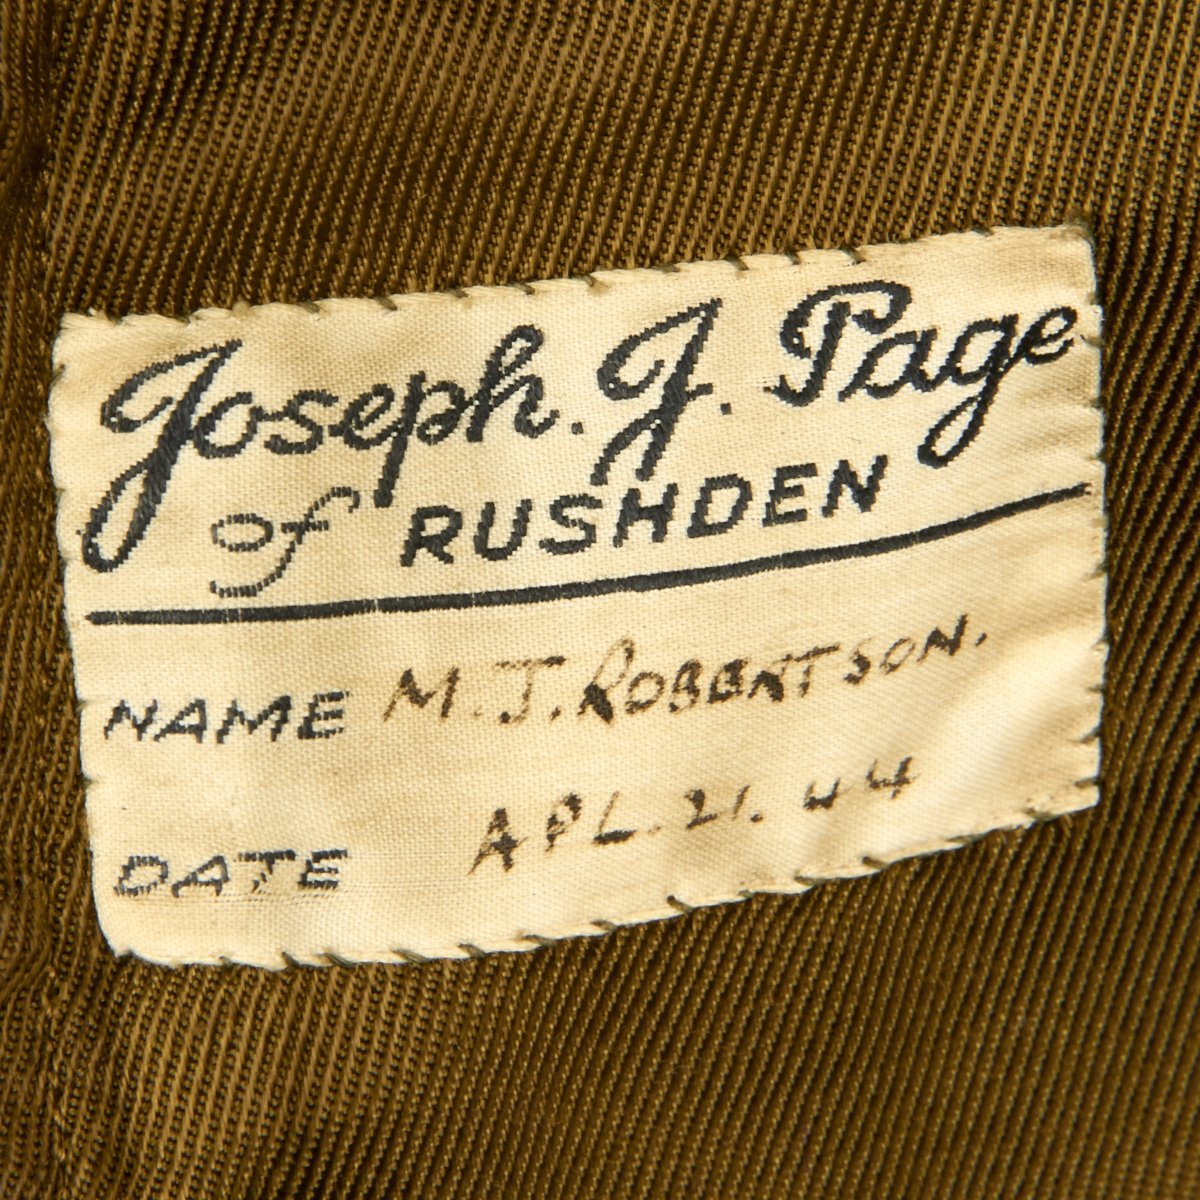 Joseph. J. Page
of RUSHDEN
NAME M.J. ROBERTSON.
DATE APL. 21. 44